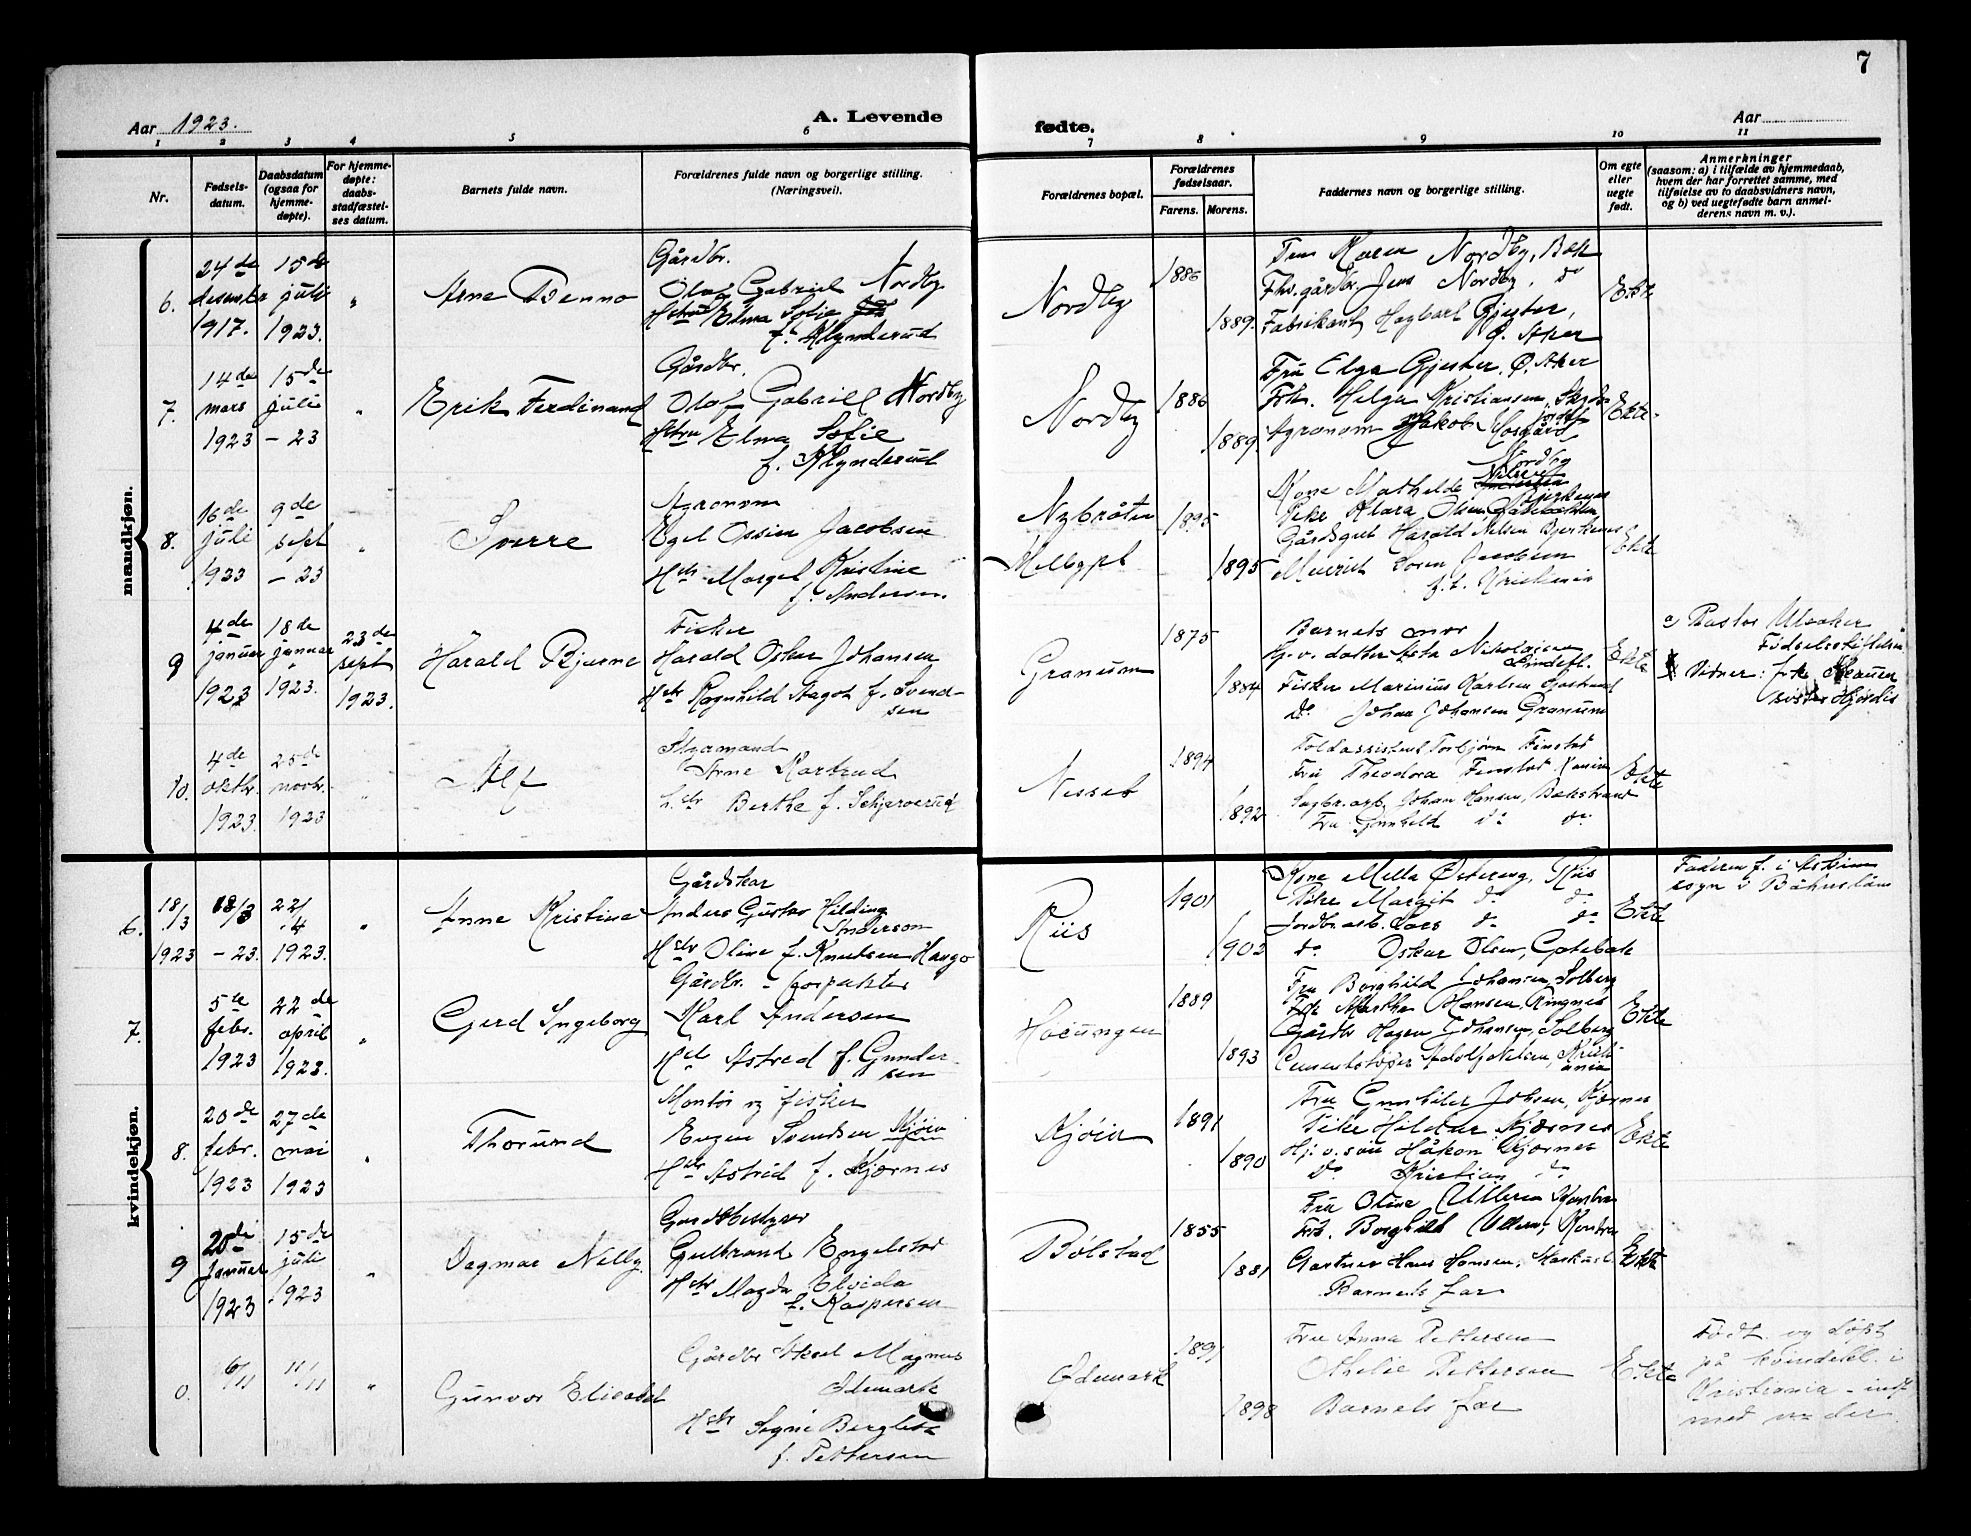 7
Aar 1923.
A. Levende
fødte.
Aar
1 2 3 4 5 6 7 8 9 10 11
Nr.
Fødsels-
datum.
Daabsdatum
(ogsaa for
hjemme-
døpte).
For hjemme-
døpte:
daabs-
stadfæstel-
ses datum.
Barnets fulde navn.
Forældrenes fulde navn og borgerlige stilling.
(Næringsvei).
Forældrenes bopæl.
Forældrenes
fødselsaar.
Farens. Morens.
Faddernes navn og borgerlige stilling.
Om egte
eller
uegte
født.
Anmerkninger
(saasom: a) i tilfælde av hjemmedaab,
hvem der har forrettet samme, med
tilføielse av to daabsvidners navn,
og b) ved uegtefødte barn anmel-
derens navn m. v.).
mandkjøn.
6.
24de
desember
1917.
15de
juli
1923.
"
Arne Benno
Gårdbr.
Olaf Gabriel Nordby
Hstru Elma Sofie
f. Klynderud
Nordby
1886
1889.
Karen Nordby,
Fhv. gårdbr. Jens Nordby, do
Fabrikant Hagbart Gjester,
Ø. Aker
Ekte
7.
14de
mars
1923
15de
juli
- 23
"
Erik Ferdinand
Gårdbr.
Olaf Gabriel Nordby
Hstru Elma Sofie
f. Klynderud
Nordby
1886
1889.
Fru Elga Gjester, Ø. Aker
Frk. Helga Kristiansen,
Agronom Jakob
Nordby
Ekte
8.
16de
juli
1923
9de
sept
- 23
"
Sverre
Agronom
Egil Ossian Jacobsen
Hstr Margit Kristine
f. Andersen.
Nybråten
Mellegpt
1895
1895
Kone Mathilde Nilsen
Pike Klara Olsen
Gårdsgut Harald Nilsen Bjerkenes
Meierist Soren Jacobsen
f.t. Kristiania
Ekte
9
4de
januar
1923
18de
januar
1923.
23de
sept
1923.
Harald Bjarne
Fisker
Harald Oskar Johansen
Hstr Ragnhild Dagot f. Svend-
sen
Granum
1875
1884
Barnets mor
Hj. v. datter Asta Nikolaisen
Lindefl.
Fisker Marinius Karlsen
do Johan Johansen Granum
Ekte
a) Pastor Ulsaker
Fødselsstiftelsen
Vidner: frk.
søster Hjørdis
10.
4de
oktbr.
1923.
25de
novbr.
1923
"
Alf
Styrmand
Arne Kortrud
Hstr Berthe f. Schjerverud
Nesset
1894
1892
Toldassistent Torbjørn Finstad
Fru Theodora Finstad,
Sagbr. arb. Johan Hansen, Bækstrand
Fru Gunhild do do
Ekte
kvindekjøn.
6.
18/3
1923
18/3
- 23.
22/4
1923.
"
Anne Kristine
Gårdskar
Anders Gustav Hilding
Anderson
Hstr Oline f. Knutsen Haugo
Riis
1901
1903
Kone Mella Østereng, Riis
Pike Margit do do
Jordbr.arb. Lars do do
do Oskar Olsen,
Ekte
Faderen f. i Askim
sogn i Båhuslän
7.
5te
febr.
1923
22de
april
1923.
"
Gerd Ingeborg
Gårdbr. - forpakter
Karl Andersen
Hstr Astrid f. Gunder-
sen
Haeungen
1889
1893
Fru Borghild Johansen, Solberg
Frk Martha Hansen, Ringnes
Gårdbr Hagen Johansen, Solberg
Cementstøper Adolf Nilsen, Kristi-
ania
Ekte
8.
20de
febr.
1923
27de
mai
1923
"
Thorund
Montør og fisker
Eugen Svendsen Kjöin
Hstr Astrid f. Kjærnes
Kjöin
1891
1890
Fru Gunhilda Jobsen, Kjærnes
Pike Hildur Kjærnes
Hj. v. søn Håkon Kjærnes
do Kristian do
Ekte
9
20de
Januar
1923
15de
juli
1923
"
Dagmar Nelly
Gardbestyrer
Gulbrand Engelstad
Hstr Magda Elvida
f. Kaspersen
Bølstad
1855
1881
Fru Oline Ullern
Frk. Borghild Ullern,
Gartner Hans Hansen,
Barnets far
Ekte
0.
6/11
11/11
"
Gunvor Elisabet
Gårdbr Aksel Magnus
Ødemark
Hstr Signe Bergliot
f. Pettersen
Ødemark
1891
1898
Fru Anna Pettersen
Othelie Pettersen
Barnets far
Ekte
Født og døpt
på kvindekl. i
Kristiania - inf
med